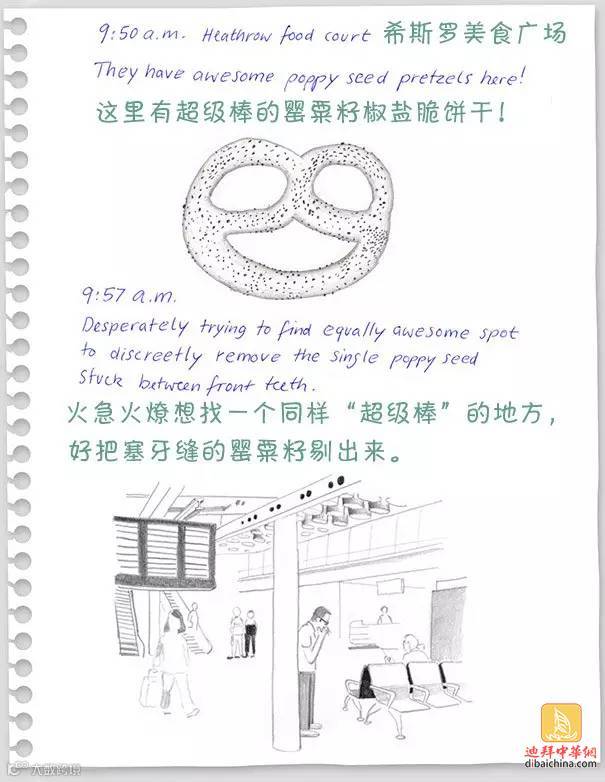 9:50 a.m. Heathrow food court 希斯罗美食广场
They have awesome poppy seed pretzels here!
这里有超级棒的罂粟籽椒盐脆饼干！
9:57 a.m.
Desperately trying to find equally awesome spot
to discreetly remove the single poppy seed
stuck between front teeth.
火急火燎想找一个同样“超级棒”的地方，
好把塞牙缝的罂粟籽剔出来。
大数跨境
迪拜中華網
dibaichina.com